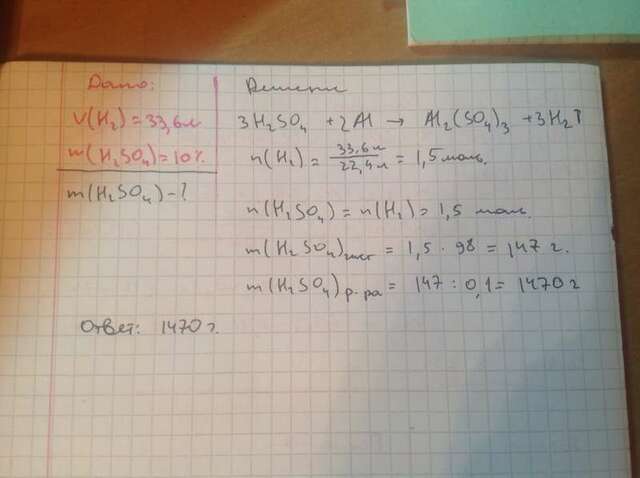 Дано:
V(H₂) = 33,6 л
w(H₂SO₄) = 10%
m(H₂SO₄) - ?
Решение
3H₂SO₄ + 2Al → Al₂(SO₄)₃ + 3H₂↑
n(H₂) = 33,6 л / 22,4 л = 1,5 моль.
n(H₂SO₄) = n(H₂) = 1,5 моль.
m(H₂SO₄)чист = 1,5 · 98 = 147 г.
m(H₂SO₄)р-ра = 147 : 0,1 = 1470 г
Ответ: 1470 г.